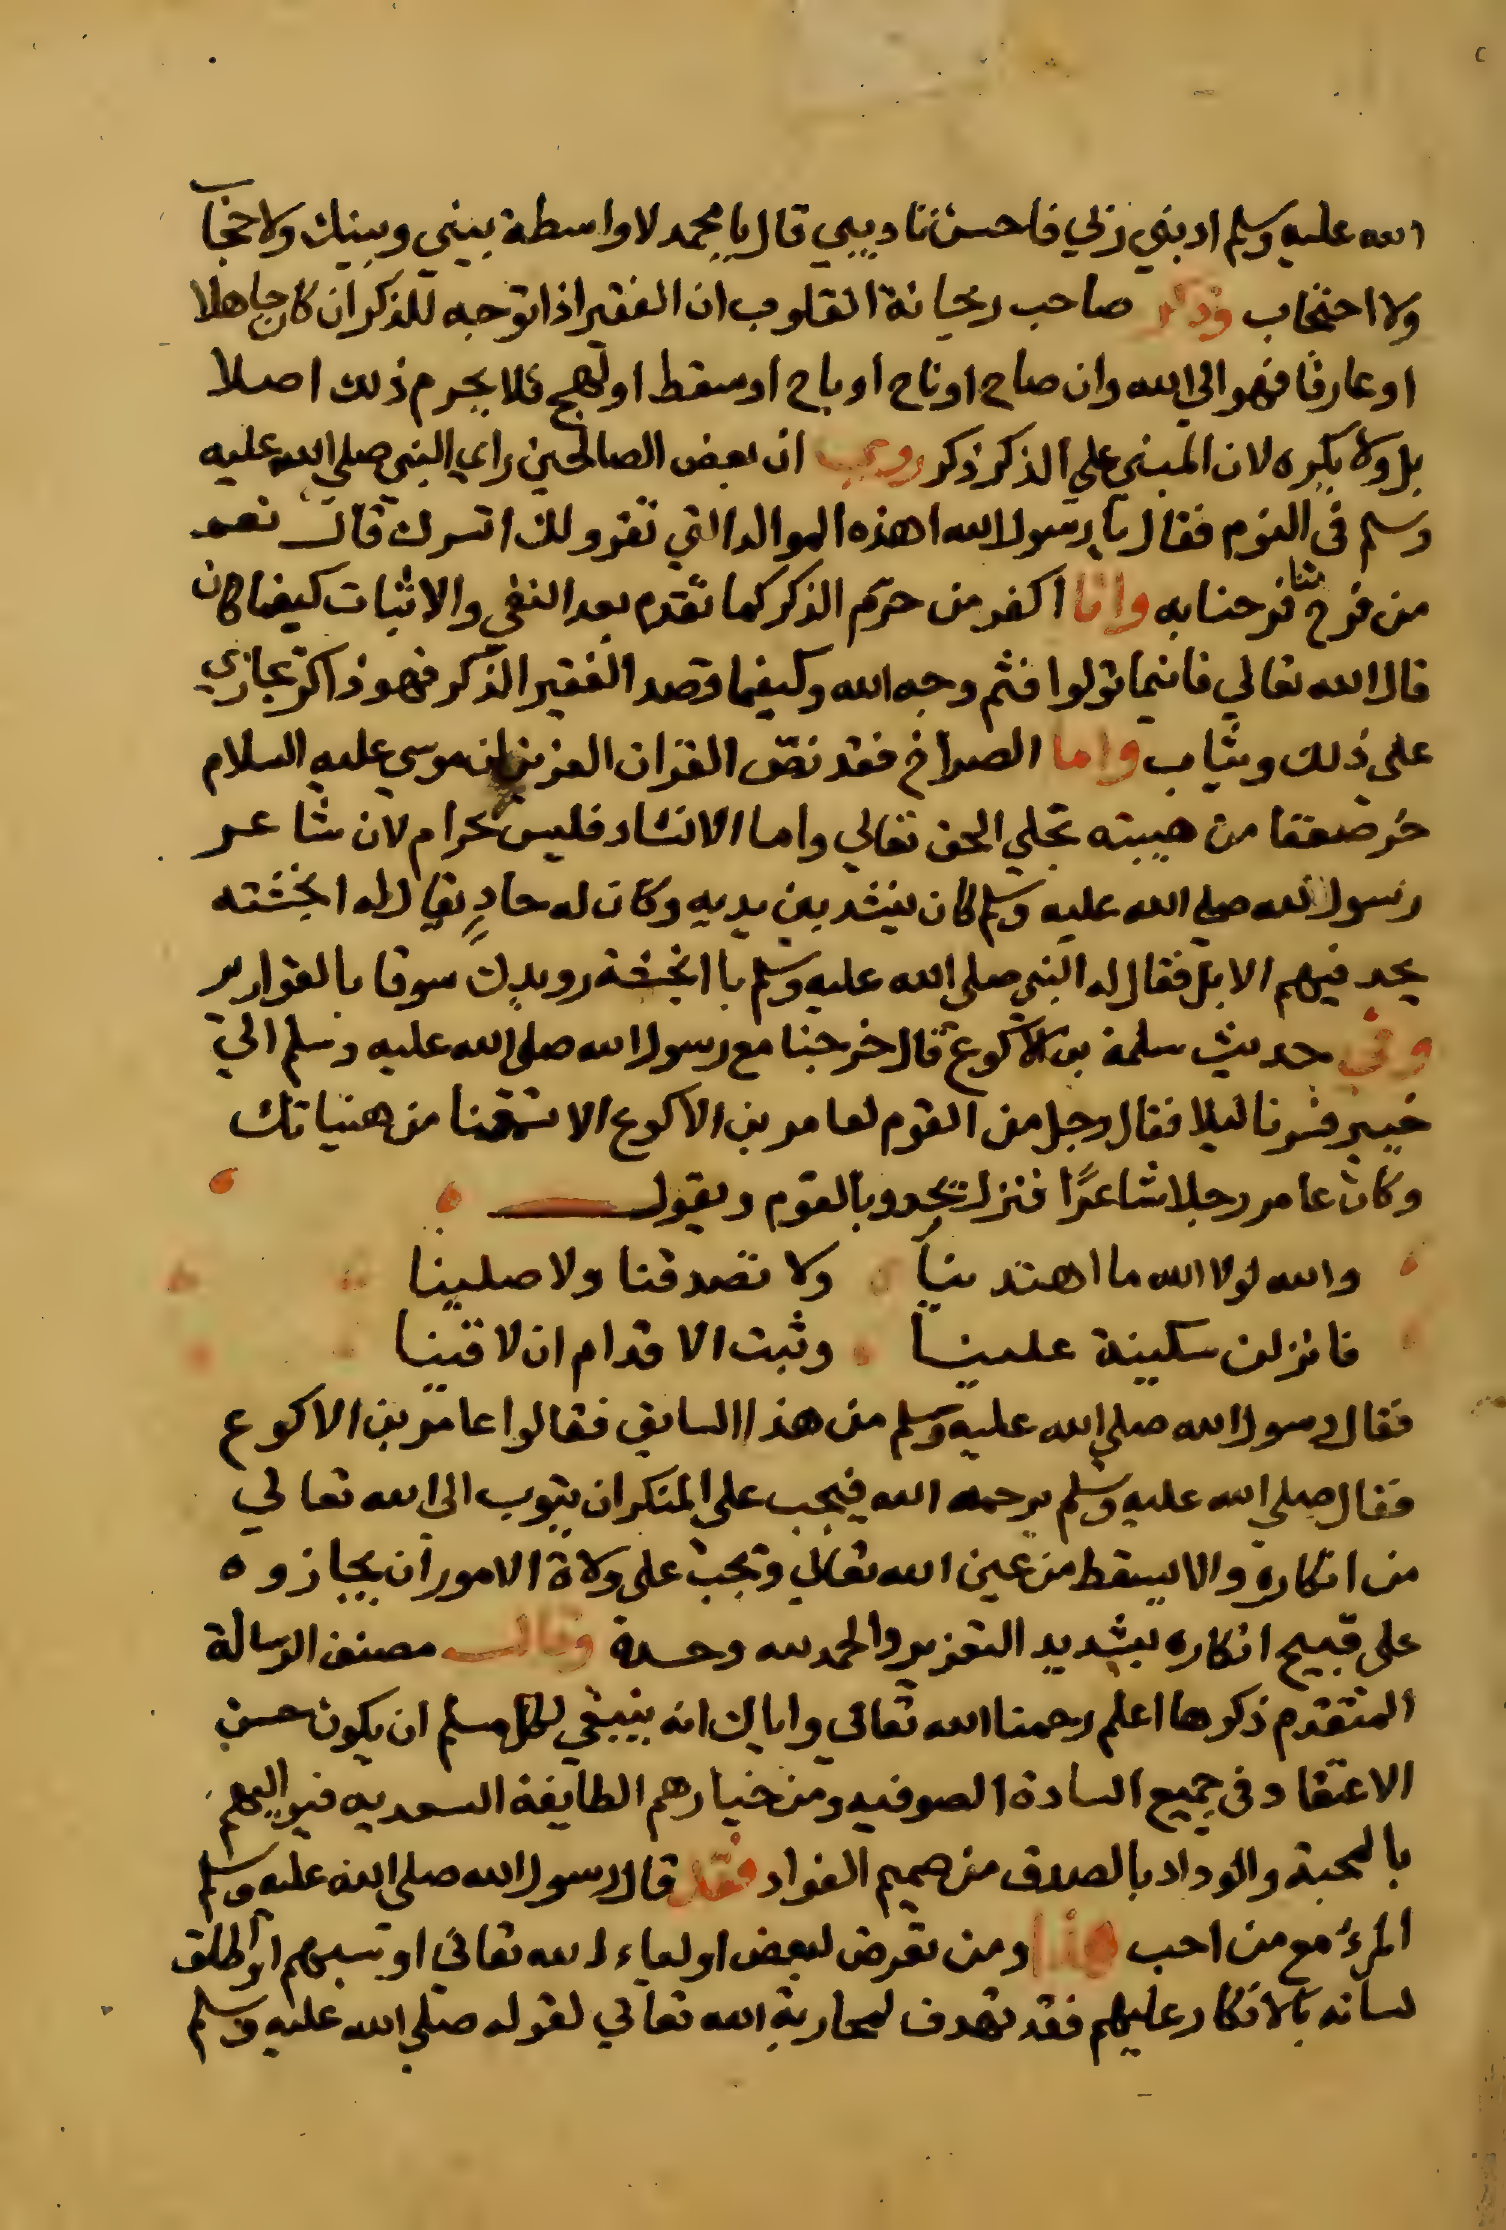 الله عليه وسلم ادبني ربي فاحسن تاديبي قال يا محمد لا واسطة بيني وبينك ولا حجاب
ولا احتجاب وذكر صاحب ريحانة القلوب ان الفقير اذا توجه للذكر ان كان جاهلا
او عارفا فهو الي الله وان صاح او ناح او باح او سقط او لهج فلا يحرم ذلك اصلا
بل ولا يكره لان المبني علي الذكر ذكر ان بعض الصالحين راي النبي صلي الله عليه
وسلم في النوم فقال يا رسول الله اهذه الموالد التي تقرو لك اتسرك قال نعم
من فرح بنا فرحنا به وانا اكفر من حرّم الذكر كما تقدم بعد النفي والاثبات كيفما كان
قال الله تعالي فاينما تولوا فثم وجه الله وكيفما قصد الفقير الذكر فهو ذاكر يجازي
علي ذلك ويثاب واما الصراخ فقد نصّ القران العزيز ان موسي عليه السلام
خر صعقا من هيبته تجلي الحق تعالي واما الانشاد فليس بحرام لان شاعر
رسول الله صلي الله عليه وسلم كان ينشد بين يديه وكان له حادٍ يقال له انجشته
يحد فيهم الابل فقال له النبي صلي الله عليه وسلم يا انجشة رويدك سوقا بالقوارير
وفي حديث سلمة بن الاكوع قال خرجنا مع رسول الله صلي الله عليه وسلم الي
خيبر فسرنا ليلا فقال رجل من القوم لعامر بن الاكوع الا تسمعنا من هنياتك
وكان عامر رجلا شاعرًا فنزل يحدو بالقوم ويقول
والله لولا الله ما اهتدينا ولا تصدقنا ولا صلينا
فانزلن سكينة علينا وثبت الاقدام ان لاقينا
فقال رسول الله صلي الله عليه وسلم من هذا السايق فقالوا عامر بن الاكوع
فقال صلي الله عليه وسلم يرحمه الله فيجب علي المنكر ان يتوب الي الله تعالي
من انكاره والا يسقط من عين الله تعالي وتجب علي ولاة الامور ان يجازوه
علي قبيح انكاره بشديد التعزير والحمد لله وحده وقال مصنف الرسالة
المتقدم ذكرها اعلم رحمنا الله تعالي واياك انه ينبغي لكل مسلم ان يكون حسن
الاعتقاد في جميع السادة الصوفيه ومن خيارهم الطايفة السعديه فيواليهم
بالمحبة والوداد بالصدق من صميم الفواد فقد قال رسول الله صلي الله عليه وسلم
المرء مع من احب هذا ومن تعرض لبعض اولياء الله تعالي او سبهم او اطلق
لسانه بالانكار عليهم فقد تهدف لمحاربة الله تعالي لقوله صلي الله عليه وسلم